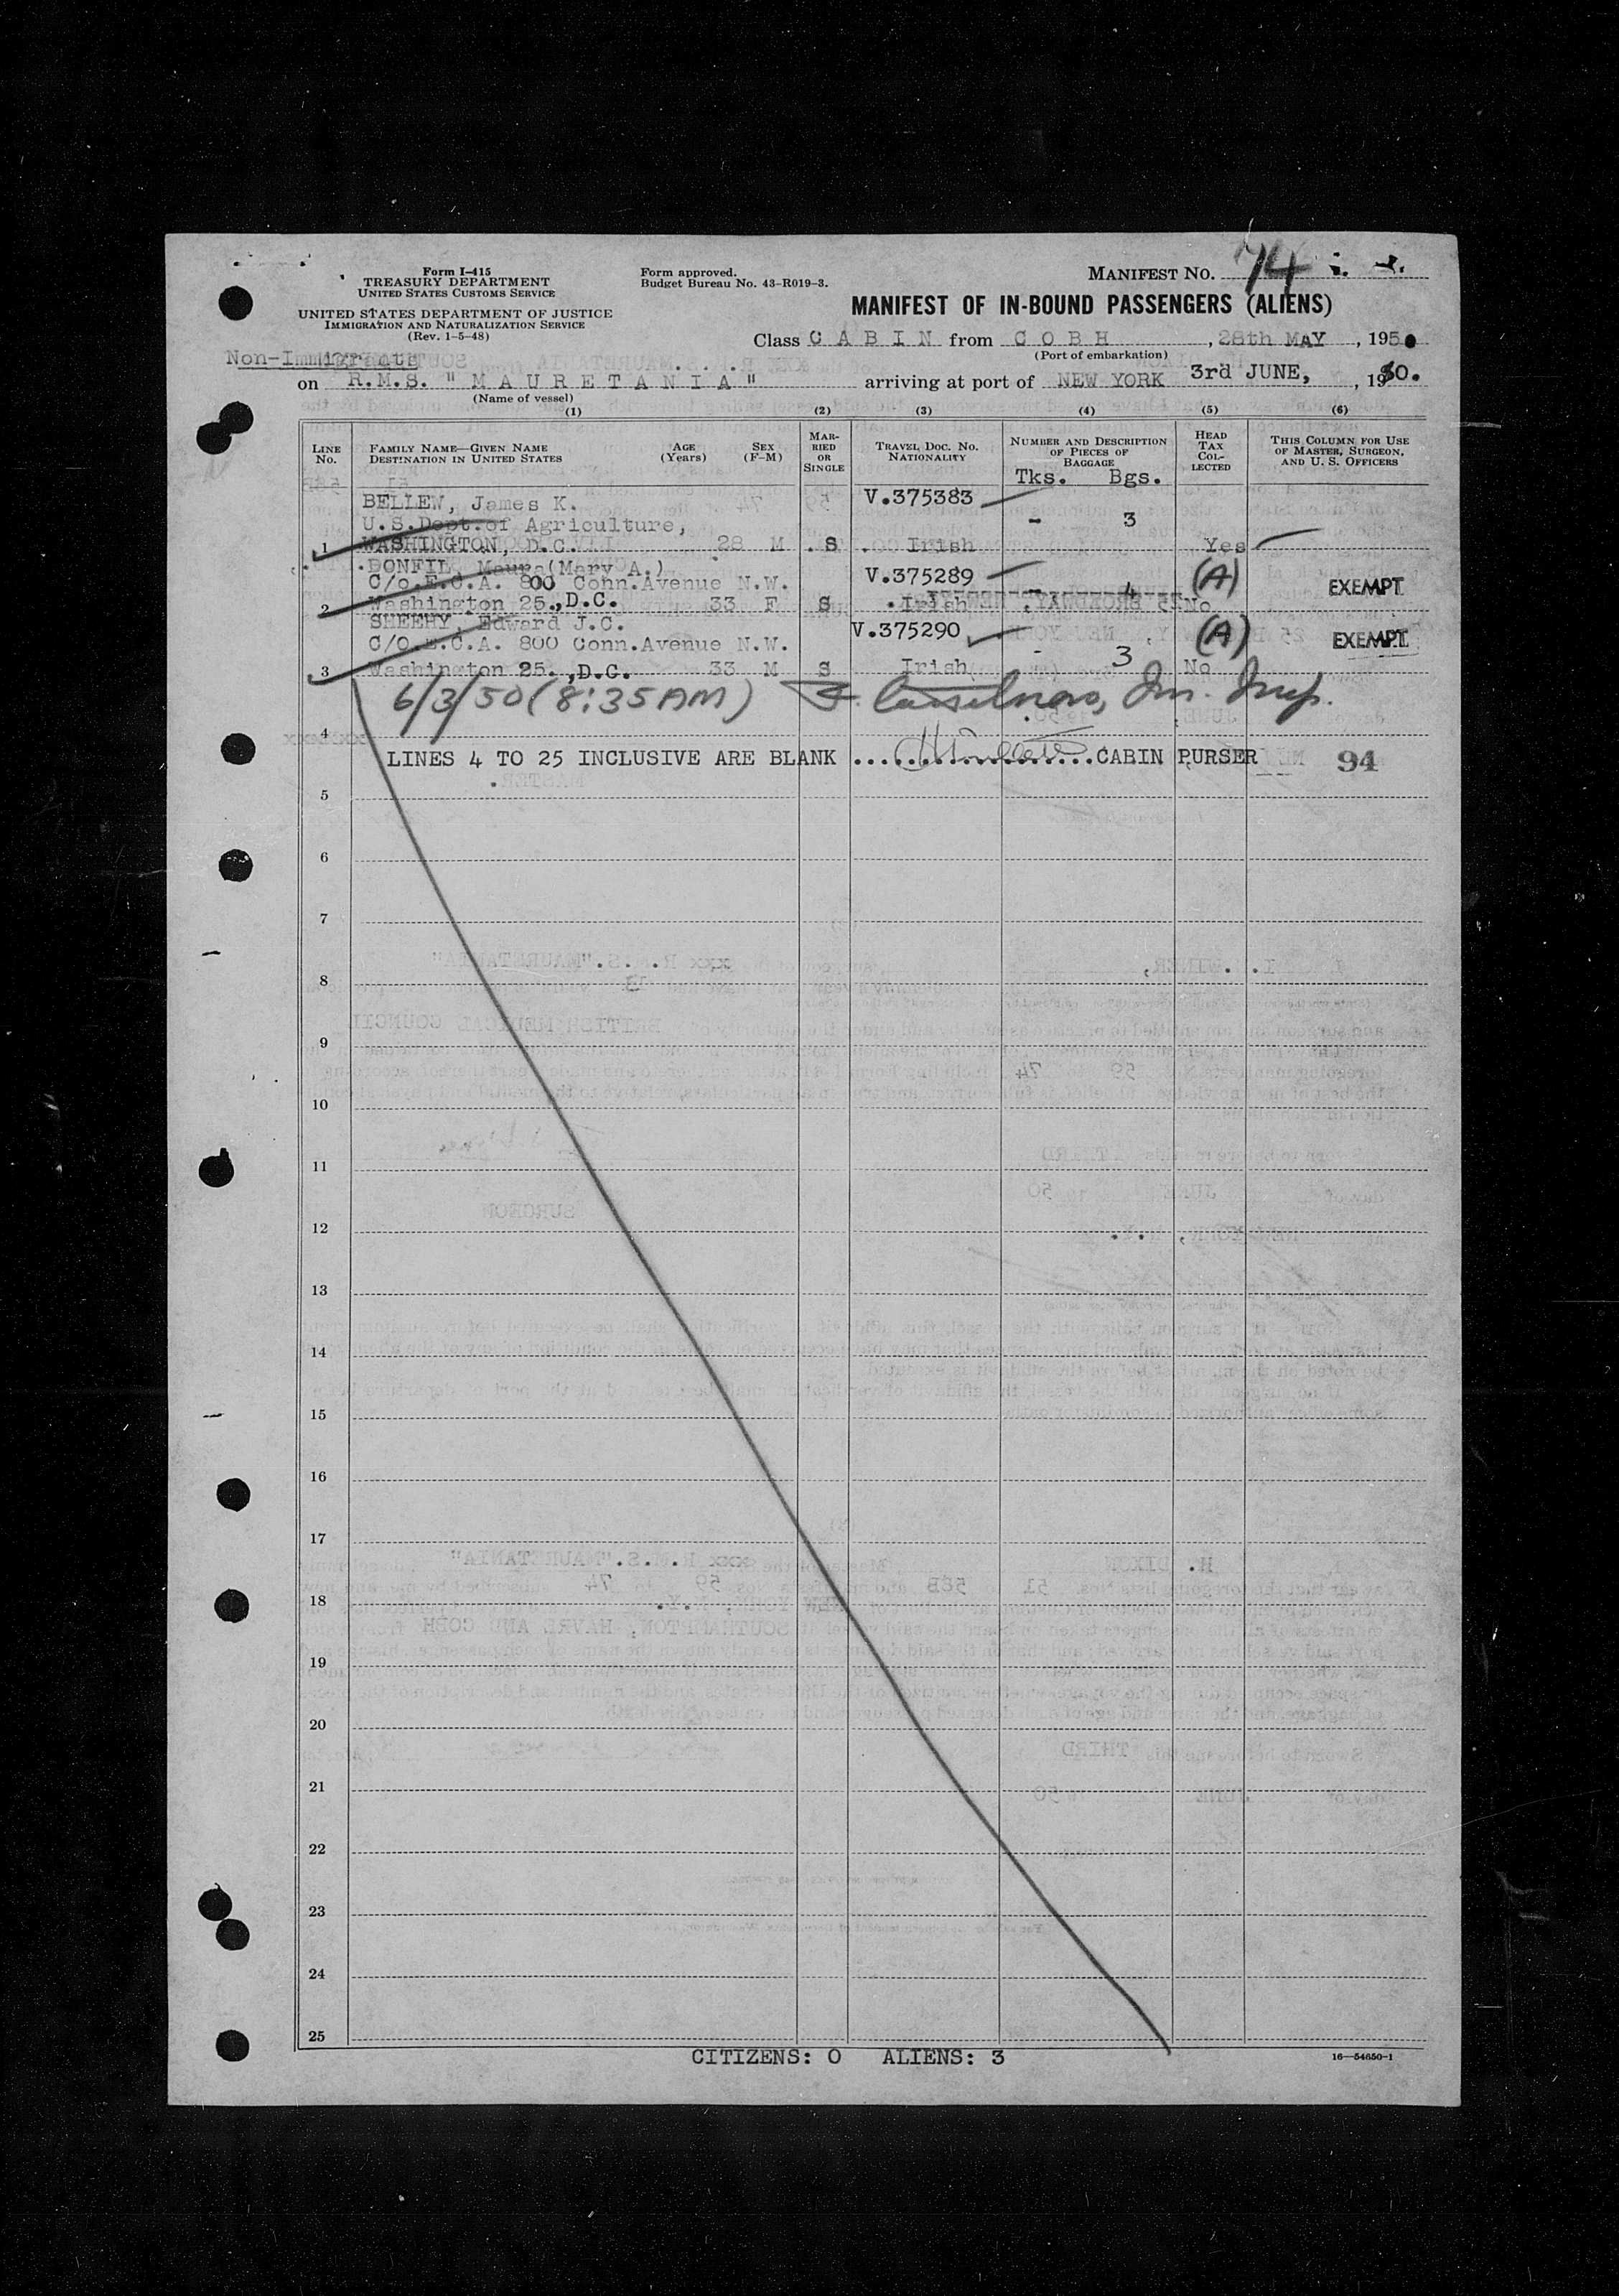 Form I-415
TREASURY DEPARTMENT
UNITED STATES CUSTOMS SERVICE
UNITED STATES DEPARTMENT OF JUSTICE
IMMIGRATION AND NATURALIZATION SERVICE
(Rev. 1-5-48)
Form approved.
Budget Bureau No. 43-R019-3.
MANIFEST NO. 74
MANIFEST OF IN-BOUND PASSENGERS (ALIENS)
Class C A B I N from C O B H , 28th MAY , 1950
(Port of embarkation)
Non-Immigrants
on R.M.S. " M A U R E T A N I A " arriving at port of NEW YORK 3rd JUNE, , 1950.
(Name of vessel)
(1) (2) (3) (4) (5) (6)
LINE No. FAMILY NAME—GIVEN NAME DESTINATION IN UNITED STATES AGE (Years) SEX (F-M) MARRIED OR SINGLE TRAVEL DOC. NO. NATIONALITY NUMBER AND DESCRIPTION OF PIECES OF BAGGAGE HEAD TAX COLLECTED THIS COLUMN FOR USE OF MASTER, SURGEON, AND U. S. OFFICERS
Tks. Bgs.
BELLEW, James K. V.375383
U.S.Dept.of Agriculture, - 3
1 WASHINGTON, D.C. 28 M S Irish Yes
DONFIL, Maura(Mary A.) V.375289 (A) EXEMPT
C/o.E.C.A. 800 Conn.Avenue N.W. - 4
2 Washington 25.,D.C. 33 F S Irish No
SHEEHY, Edward J.C. V.375290 (A) EXEMPT
C/O.E.C.A. 800 Conn.Avenue N.W. - 3
3 Washington 25.,D.C. 33 M S Irish No
6/3/50 (8:35 AM) Im. Insp.
4
LINES 4 TO 25 INCLUSIVE ARE BLANK CABIN PURSER 94
5
6
7
8
9
10
11
12
13
14
15
16
17
18
19
20
21
22
23
24
25
CITIZENS: 0 ALIENS: 3
16—54650-1